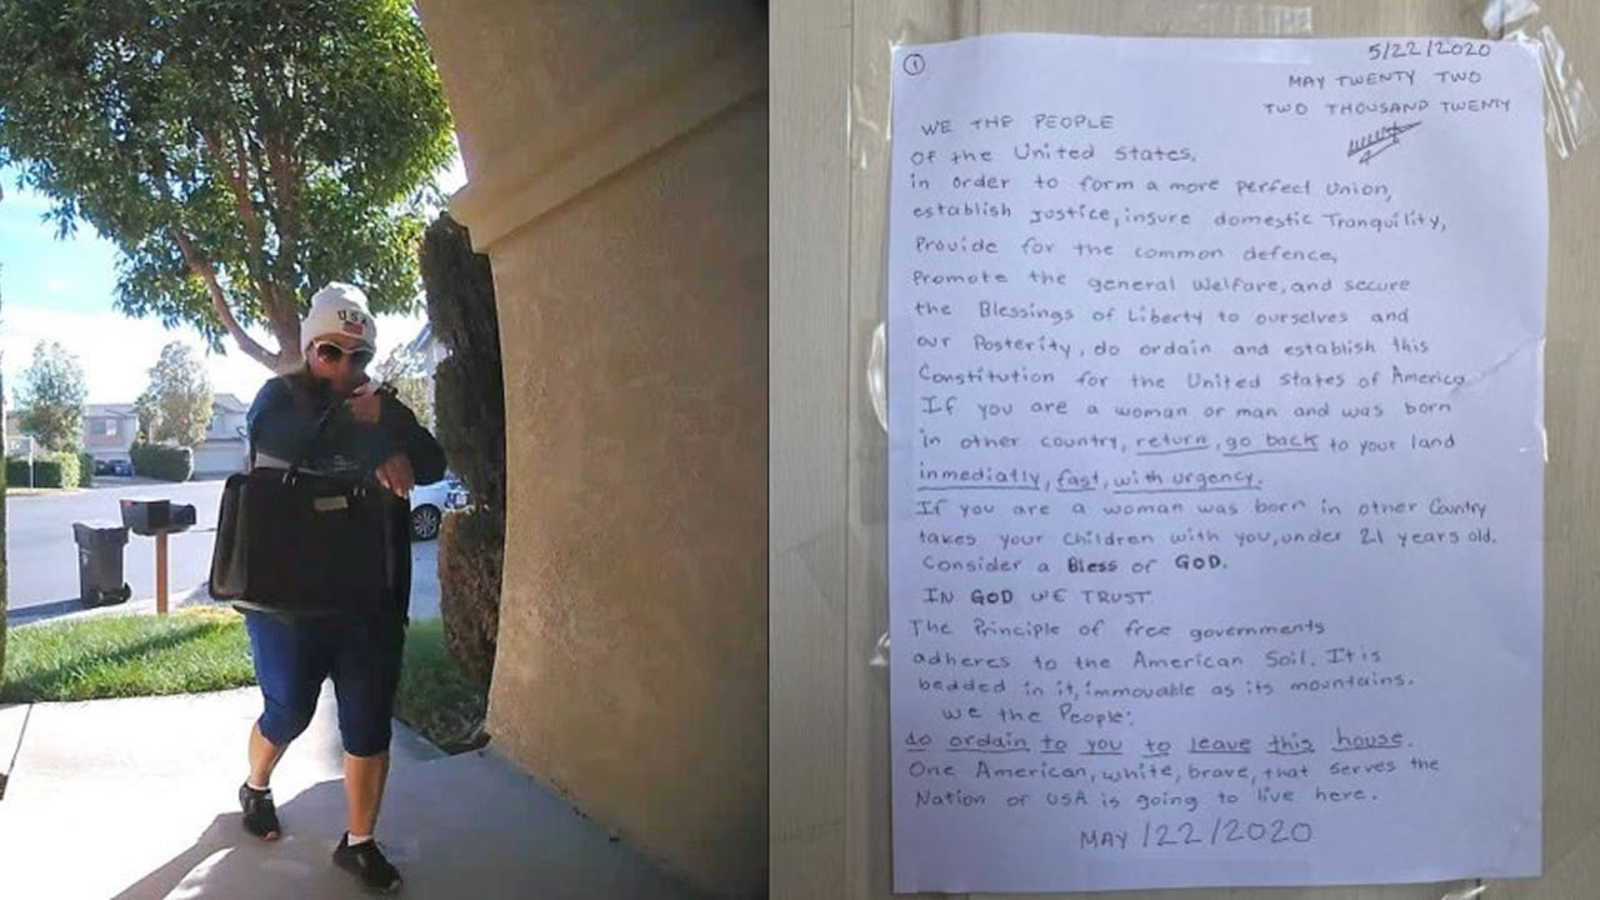 USA
①
5/22/2020
MAY TWENTY TWO
TWO THOUSAND TWENTY
WE THE PEOPLE
Of the United States,
in order to form a more perfect Union,
establish justice, insure domestic Tranquility,
Provide for the common defence,
Promote the general Welfare, and secure
the Blessings of Liberty to ourselves and
our Posterity, do ordain and establish this
Constitution for the United States of America
If you are a woman or man and was born
in other country, return, go back to your land
inmediatly, fast, with urgency.
If you are a woman was born in other Country
takes your children with you, under 21 years old.
Consider a Bless of GOD.
IN GOD WE TRUST.
The Principle of free governments
adheres to the American Soil. It is
bedded in it, immovable as its mountains.
we the People:
do ordain to you to leave this house.
One American, white, brave, that serves the
Nation or USA is going to live here.
MAY /22/2020